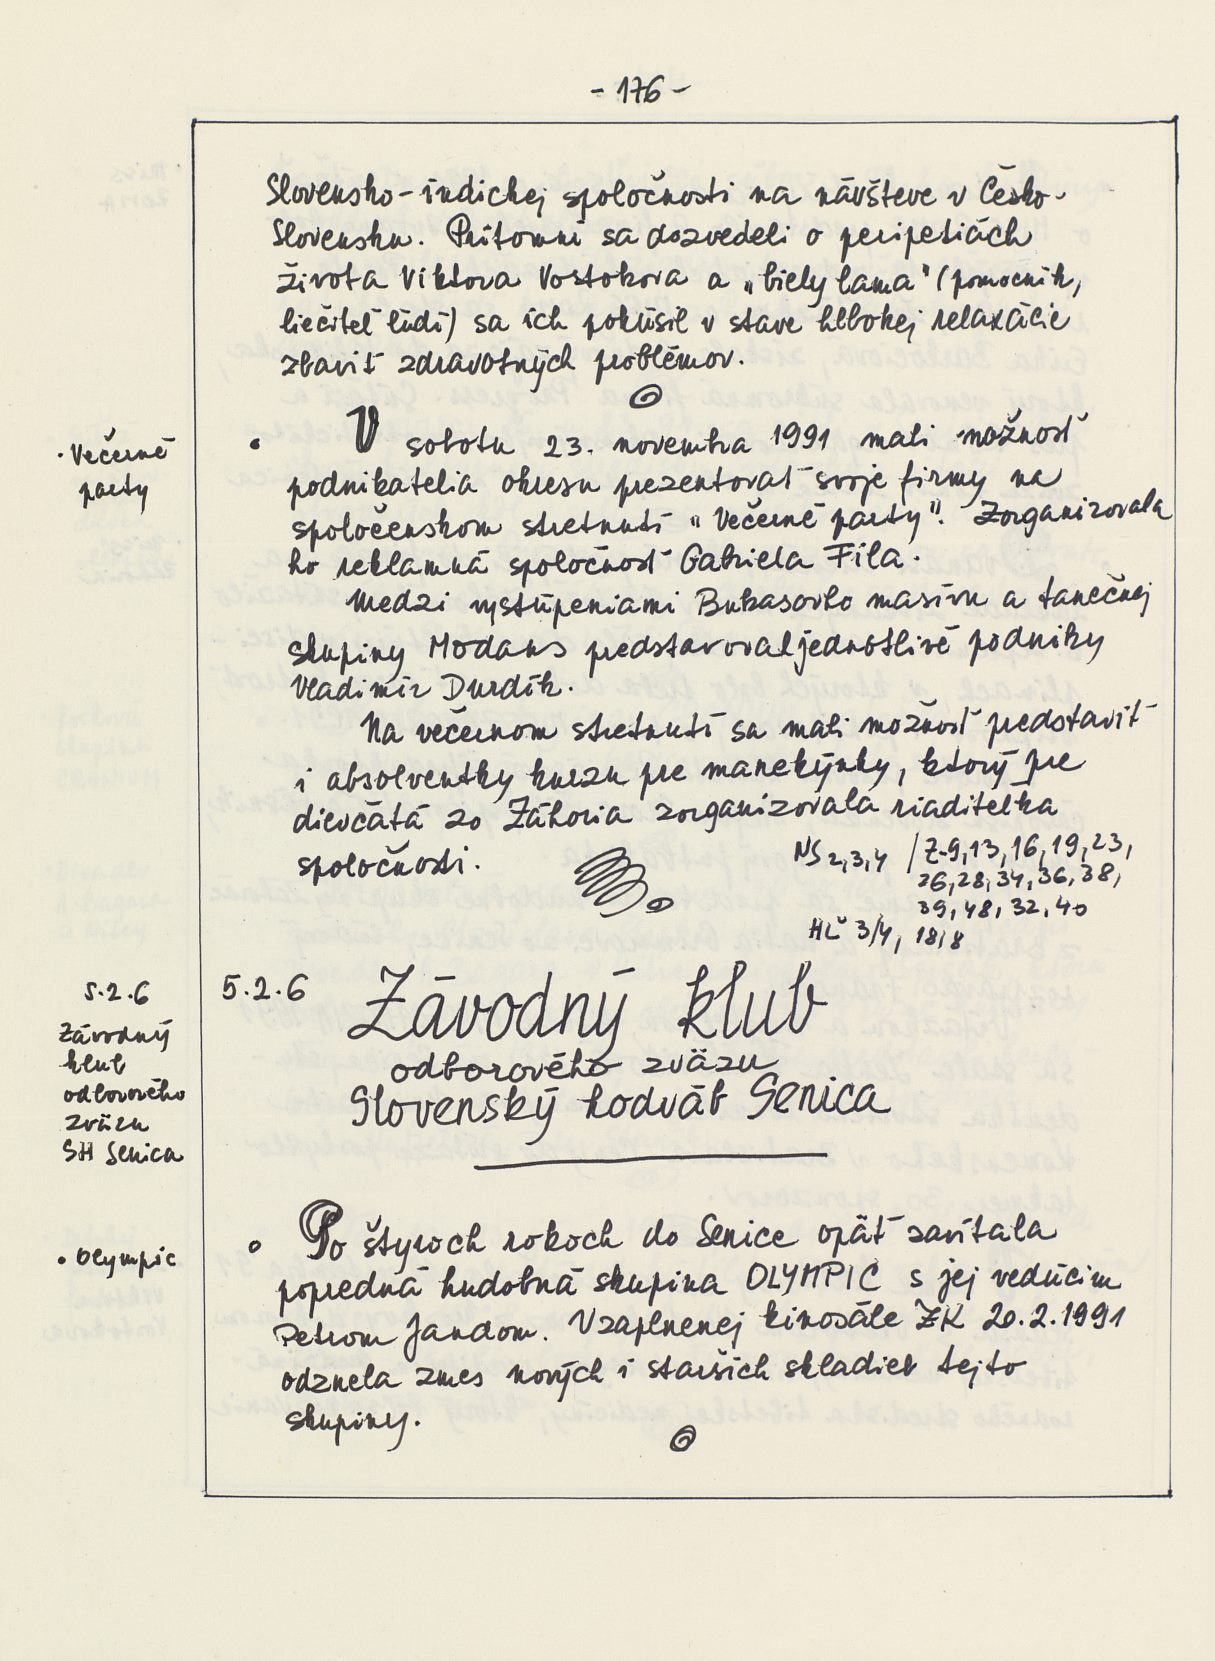 - 176 -
Slovensko-indickej spoločnosti na návšteve v Česko-
Slovensku. Prítomní sa dozvedeli o peripetiách
života Viktora Vostokova a „biely lama" (pomocník,
liečiteľ ľudí) sa ich pokúsil v stave hlbokej relaxácie
zbaviť zdravotných problémov.
· Večerné
party
• V sobotu 23. novembra 1991 mali možnosť
podnikatelia okresu prezentovať svoje firmy na
spoločenskom stretnutí "Večerné party". Zorganizovala
ho reklamná spoločnosť Gabriela Fila.
Medzi vystúpeniami Bukasového masívu a tanečnej
skupiny Modans predstavoval jednotlivé podniky
Vladimír Durdík.
Na večernom stretnutí sa mali možnosť predstaviť
i absolventky kurzu pre manekýnky, ktorý pre
dievčatá zo Záhoria zorganizovala riaditeľka
spoločnosti.
NS 2,3,4 / Z-9,13,16,19,23,
26,28,34,36,38,
39,48,32,40
HĽ 3/4, 18,8
5.2.6
Závodný
klub
odborového
zväzu
SH Senica
5.2.6 Závodný klub
odborového zväzu
Slovenský hodváb Senica
• Olympic
• Po štyroch rokoch do Senice opäť zavítala
popredná hudobná skupina OLYMPIC s jej vedúcim
Petrom Jandom. V zaplnenej kinosále ZK 20.2.1991
odznela zmes nových i starších skladieb tejto
skupiny.